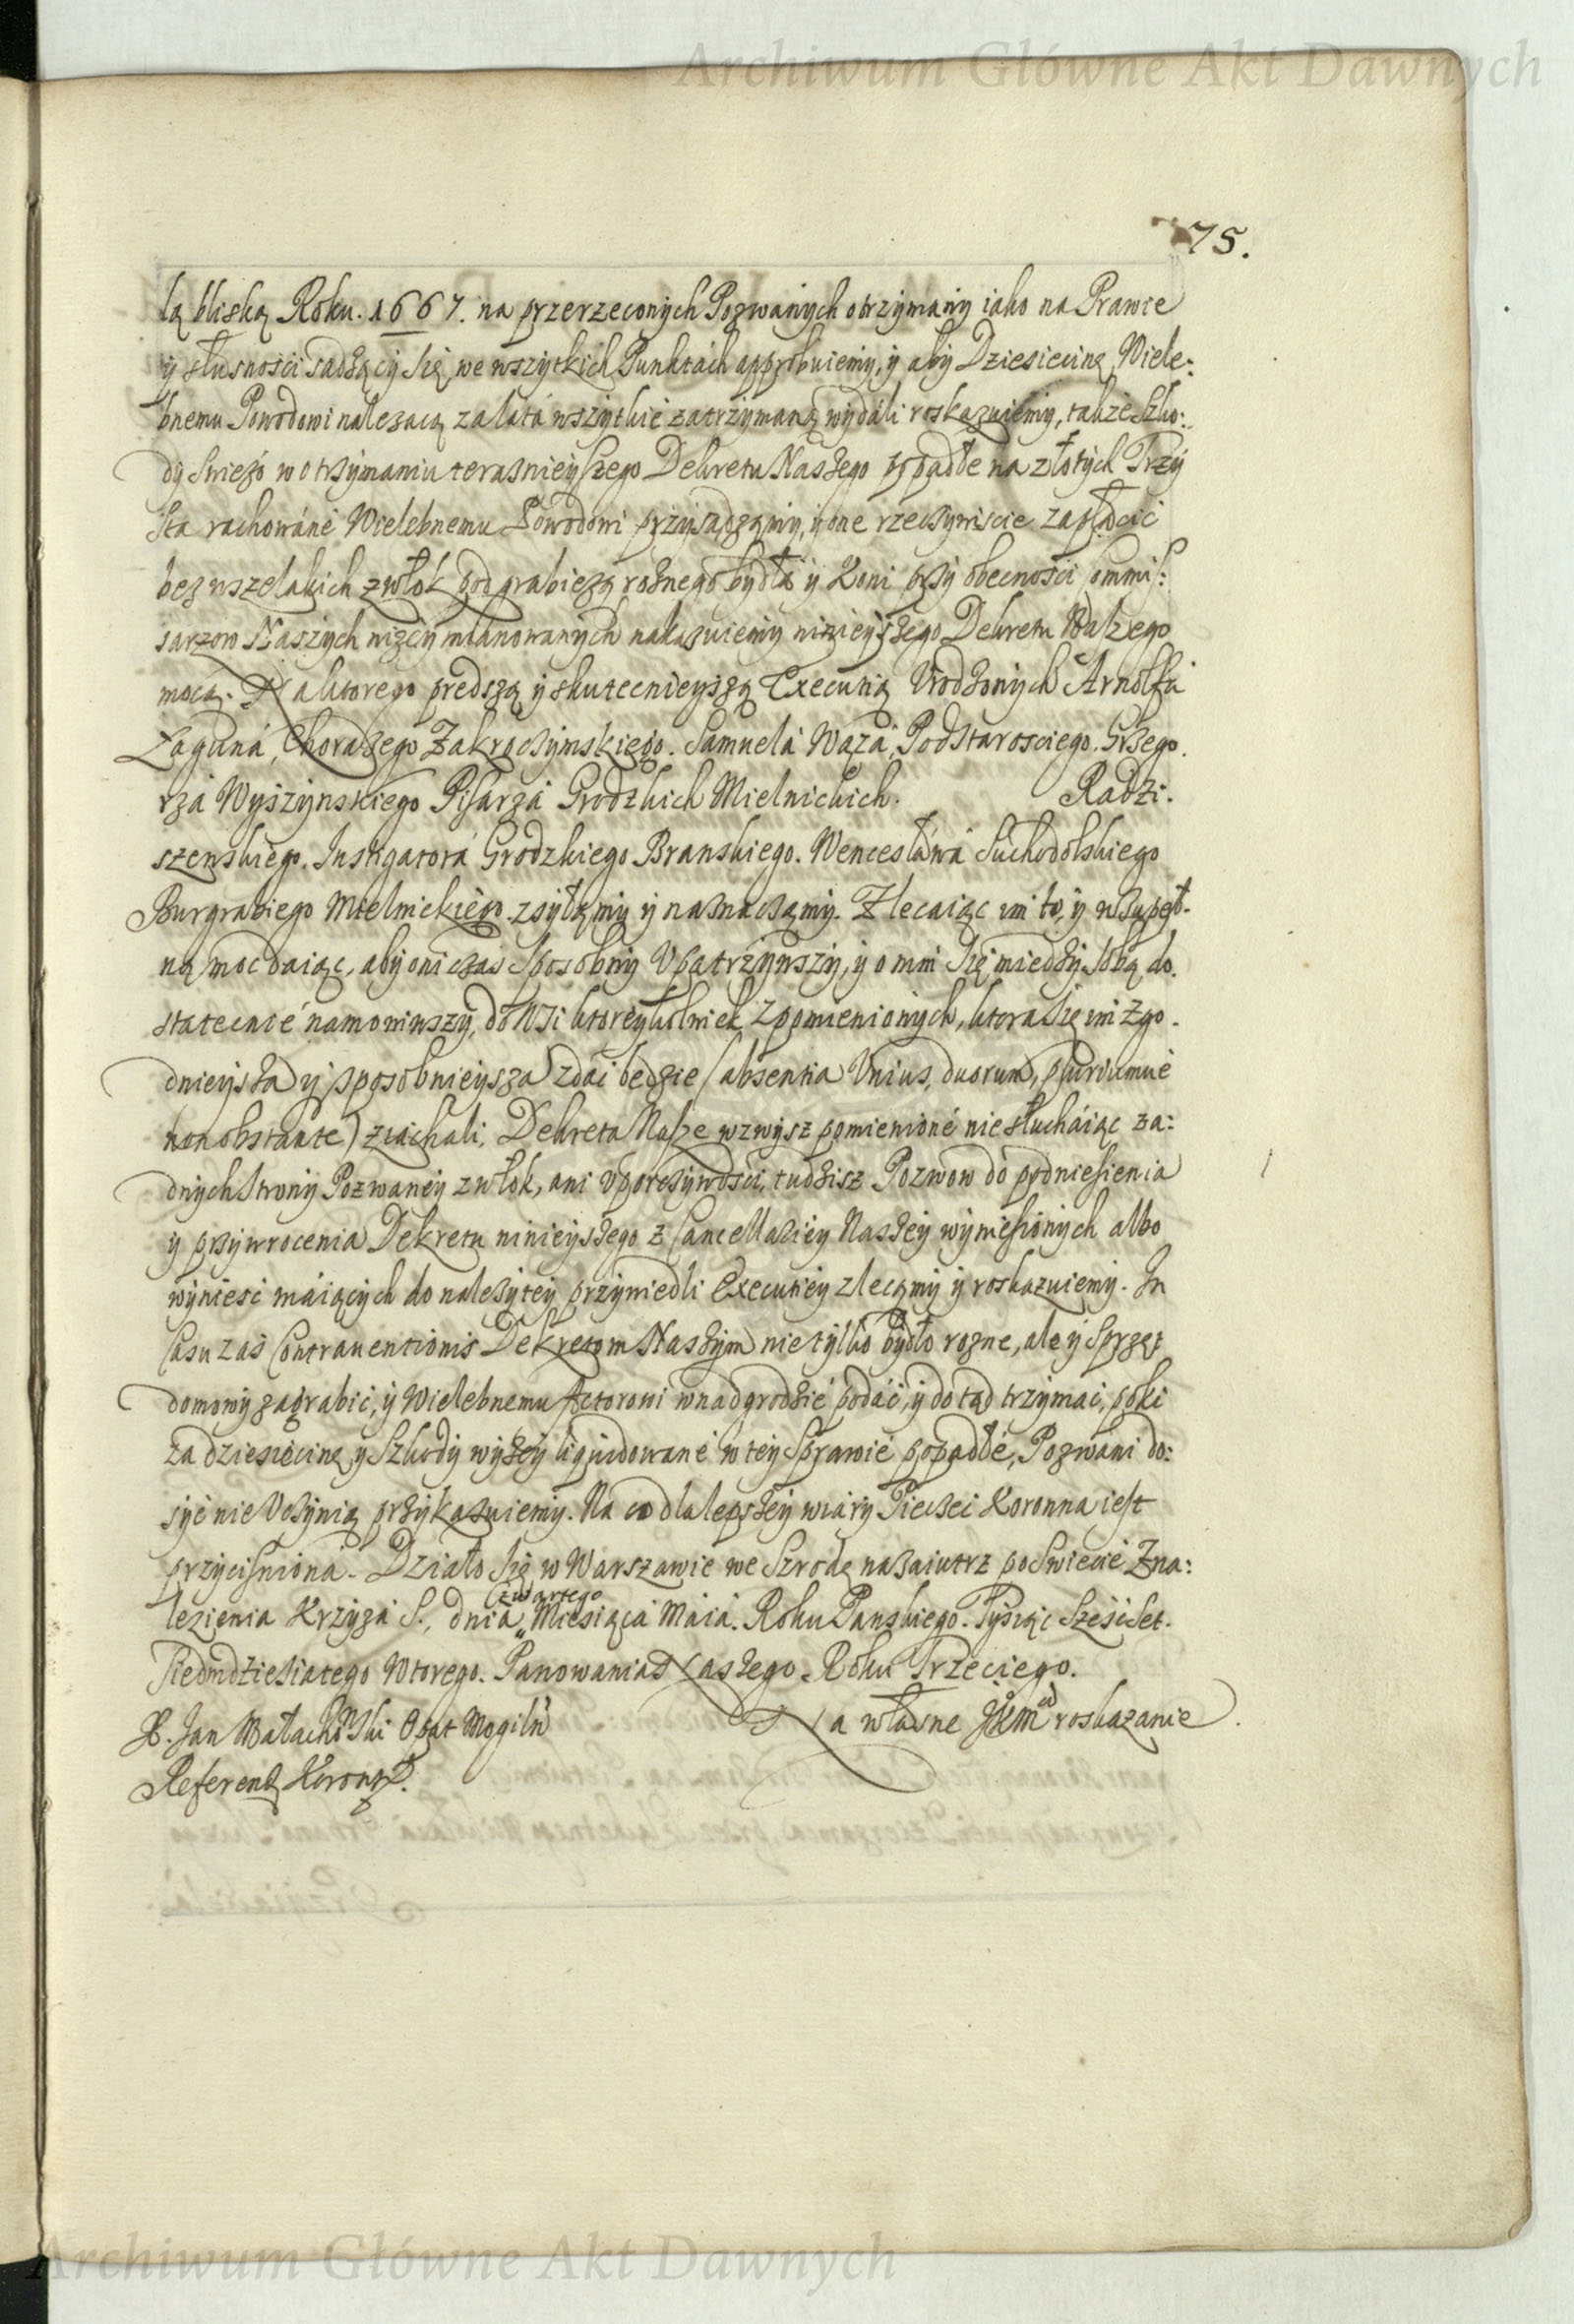 Archiwum Główne Akt Dawnych
75.
lą bliską Roku. 1667. na przerzeconych Pozwanych otrzymany iako na Prawie
y słusnosci sadzący się, we wszytkich Punktach approbuiemy, y aby Dziesiecinę Wiele:
bnemu Powodowi nalezacą za lata wszytkie zatrzymaną wydali roskazuiemy, takze Szko:
dy swiezo w otrzymaniu terasnieyszego Dekretu Naszego popadłe na złotych Trzy
sta rachowane Wielebnemu Powodowi przysądzamy, y one rzeczywiscie zapłacic
bez wszelakich zwłok pod grabiezą roznego bydła y Koni przy obecnosci Commis:
sarzow Naszych nizey mianowanych nakazuiemy ninieyszego Dekretu Naszego
mocą. Na ktorego predszą y skutecznieyszą Executią Urodzonych Arnolfa
Łaguna, Chorązego Zakroczymskiego. Samuela Wąza, Podstarosciego. Grzego.
rza Wyszynskiego Pisarza Grodzkich Mielnickich. Radzi.
szenskiego. Instigatora Grodzkiego Branskiego. Wencesława Suchodolskiego
Burgrabiego Mielnickiego. zsyłamy y naznaczamy. Zlecaiąc im to, y zupeł-
ną moc daiąc, aby oni czas sposobny upatrzywszy, y o nim się miedzy sobą do.
statecznie namowiwszy, do Wsi ktoreykolwiek z pomienionych, ktora się im zgo-
dnieysza y sposobnieysza zdac bedzie (absentia Unius, duorum, pluriumue
non obstante) ziachali, Dekreta Nasze wzwysz pomienione nie słuchaiąc za:
dnych Strony Pozwaney zwłok, ani uporczywosci, tudzisz Pozwow do podniesienia
y przywrocenia Dekretu ninieyszego z Cancellariey Naszey wyniesionych albo
wyniesc maiących do nalezytey przywiedli Executiey zlecamy y roskazuiemy. In
Casu zas Contrauentionis Dekretom Naszym nie tylko bydło rozne, ale y Sprzęt
domowy zagrabic, y Wielebnemu Actorowi w nadgrodzie podac, y do tąd trzymac, poki
za dziesiecinę y Szkody wyzey liquidowane w tey Sprawie popadłe, Pozwani do:
syc nie uczynią przykazuiemy. Na co dla lepszey wiary Pieczec Koronna iest
przycisniona. Działo się w Warszawie we Szrodę nazaiutrz po Swiecie Zna:
lezienia Krzyza S., dnia Czwartego Miesiąca Maia. Roku Panskiego. Tysiąc Szescset.
Siedmdziesiatego Wtorego. Panowania Naszego Roku Trzeciego.
X. Jan Małachowski Opat Mogiln Na własne JKMci roskazanie.
Referend Koronny.
Archiwum Główne Akt Dawnych